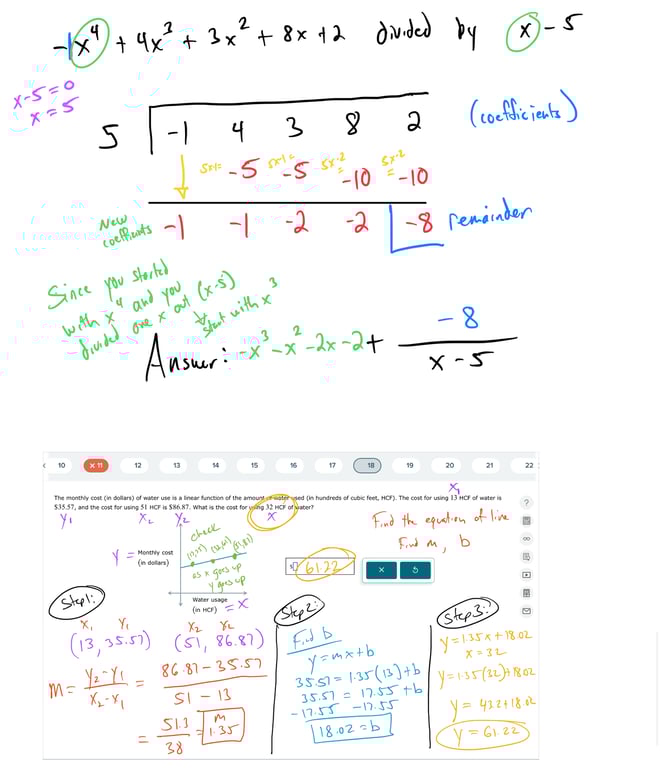 -1x⁴ + 4x³ + 3x² + 8x + 2 divided by x - 5
x-5=0
x=5
5 -1 4 3 8 2 (coefficients)
5x-1= -5 5x-1= -5 5x-2= -10 5x-2= -10
New coefficients -1 -1 -2 -2 -8 remainder
Since you started
with x⁴ and you
divided one x out (x-5)
start with x³
Answer: -x³ - x² - 2x - 2 + -8
x - 5
10 x 11 12 13 14 15 16 17 18 19 20 21 22
The monthly cost (in dollars) of water use is a linear function of the amount of water used (in hundreds of cubic feet, HCF). The cost for using 13 HCF of water is
$35.57, and the cost for using 51 HCF is $86.87. What is the cost for using 32 HCF of water?
X₁
Y₁ X₂ Y₂ X
Find the equation of line
Find m, b
check
Y = Monthly cost
(in dollars)
as x goes up
y goes up
Water usage
(in HCF) = X
$ 61.22
Step 1:
X₁ Y₁ X₂ Y₂
(13, 35.57) (51, 86.87)
M = Y₂-Y₁ = 86.87 - 35.57
X₂-X₁ 51 - 13
= 51.3 = m 1.35
38
Step 2:
Find b
y = mx + b
35.57 = 1.35(13) + b
35.57 = 17.55 + b
-17.55 -17.55
18.02 = b
Step 3:
y = 1.35x + 18.02
x = 32
y = 1.35(32) + 18.02
y = 43.2 + 18.02
y = 61.22